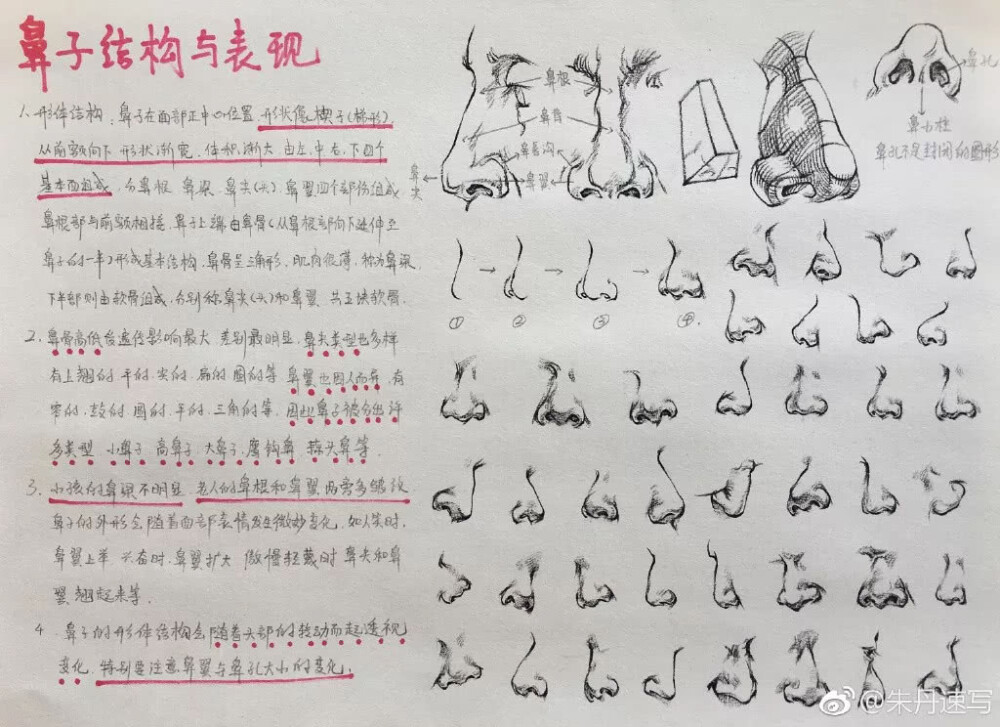 鼻子结构与表现
1、形体结构、鼻子在面部正中心位置,形状像楔子(梯形),
从前额向下形状渐宽,体积渐大,由左、中、右、下四个
基本面组成,分鼻根、鼻梁、鼻尖(头)、鼻翼四个部份组成
鼻根部与前额相接,鼻子上端由鼻骨(从鼻根部向下延伸至
鼻子的一半)形成基本结构,鼻骨呈三角形,肌肉很薄,称为鼻梁,
下半部则由软骨组成,分别称鼻尖(头)和鼻翼 共五块软骨.
2、鼻骨高低台遗传影响最大,差别最明显,鼻头类型也多样
有上翘的、平的、尖的、扁的、圆的等,鼻翼也因人而异,有
窄的、鼓的、圆的、平的、三角的等,因此鼻子被分出许
多类型 小鼻子、高鼻子、大鼻子、鹰钩鼻、蒜头鼻等.
3、小孩的鼻梁不明显,老人的鼻根和鼻翼两旁多皱纹
鼻子的外形会随着面部表情发生微妙变化,如人笑时,
鼻翼上羊,兴奋时,鼻翼扩大 傲慢轻蔑时 鼻头和鼻
翼翘起来等.
4、鼻子的形体结构会随着头部的转动而起透视
变化,特别要注意鼻翼与鼻孔大小的变化.
鼻根
鼻骨
鼻唇沟
鼻翼
鼻尖
鼻孔
鼻小柱
鼻孔不是封闭的圆形
① ② ③ ④
@朱丹速写